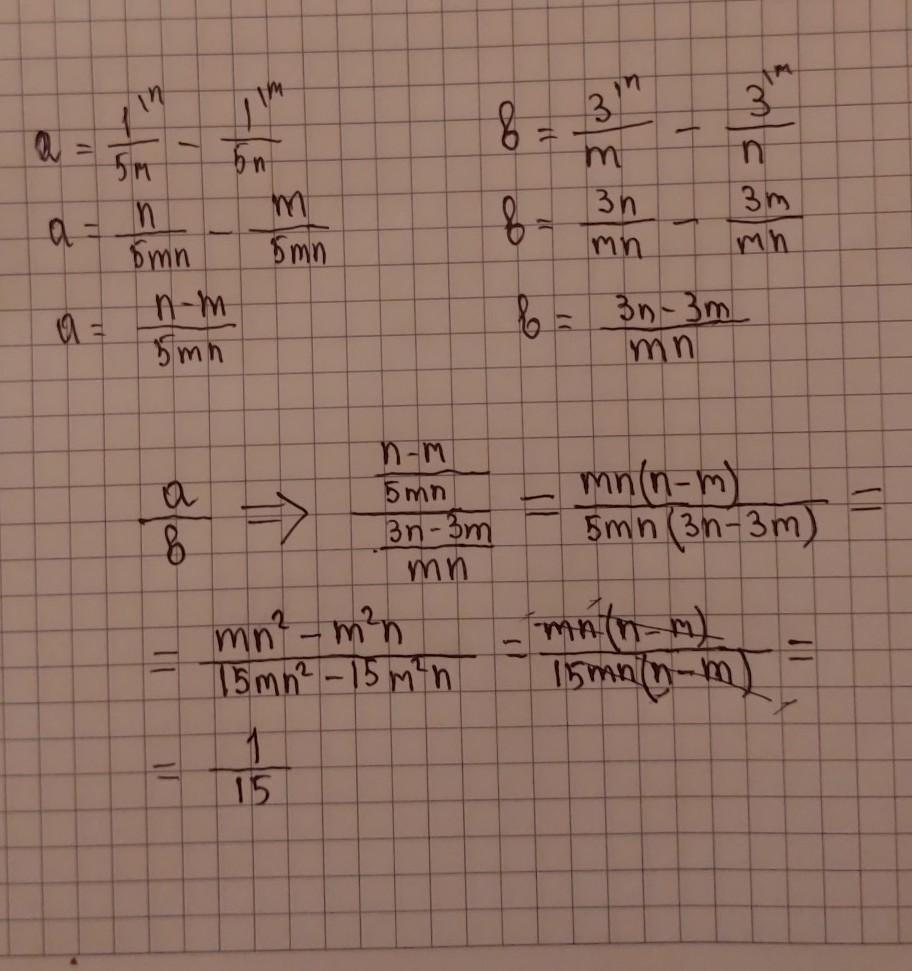 a = 1^{\n}/5m − 1^{\m}/5n
a = n/5mn − m/5mn
a = (n−m)/5mn
b = 3^{\n}/m − 3^{\m}/n
b = 3n/mn − 3m/mn
b = (3n−3m)/mn
a/b ⇒ ((n−m)/5mn)/((3n−3m)/mn) = mn(n−m)/5mn(3n−3m) =
= (mn²−m²n)/(15mn²−15m²n) = mn(n−m)/15mn(n−m) =
= 1/15